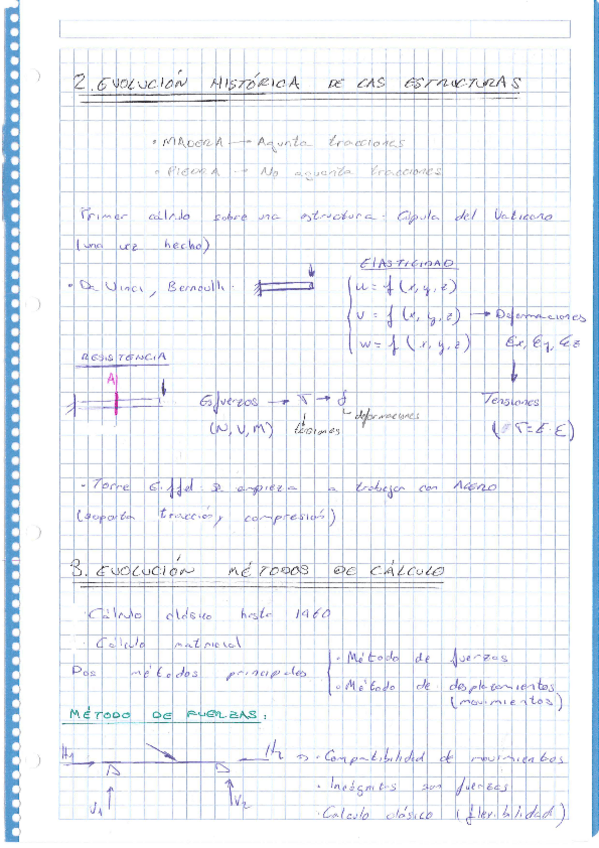 2. EVOLUCIÓN HISTÓRICA DE LAS ESTRUCTURAS
· MADERA → Aguanta tracciones
· PIEDRA → No aguanta tracciones
Primer cálculo sobre una estructura: Cúpula del Vaticano
(una vez hecho)
· Da Vinci, Bernoulli.
ELASTICIDAD
u = f (x, y, z)
v = f (x, y, z) → Deformaciones
w = f (x, y, z) εx, εy, εz
RESISTENCIA
A
Esfuerzos → σ → δ
deformaciones
(N, V, M) tensiones
Tensiones
(σ = E · ε)
· Torre Eiffel: Se empieza a trabajar con ACERO
(soporta tracción y compresión)
3. EVOLUCIÓN MÉTODOS DE CÁLCULO
· Cálculo clásico hasta 1960
· Cálculo matricial
Dos métodos principales
· Método de fuerzas
· Método de desplazamientos
(movimientos)
MÉTODO DE FUERZAS:
H1 H2 ⇒ · Compatibilidad de movimientos
· Incógnitas son fuerzas
V1 V2
· Calculo clásico (flexibilidad)